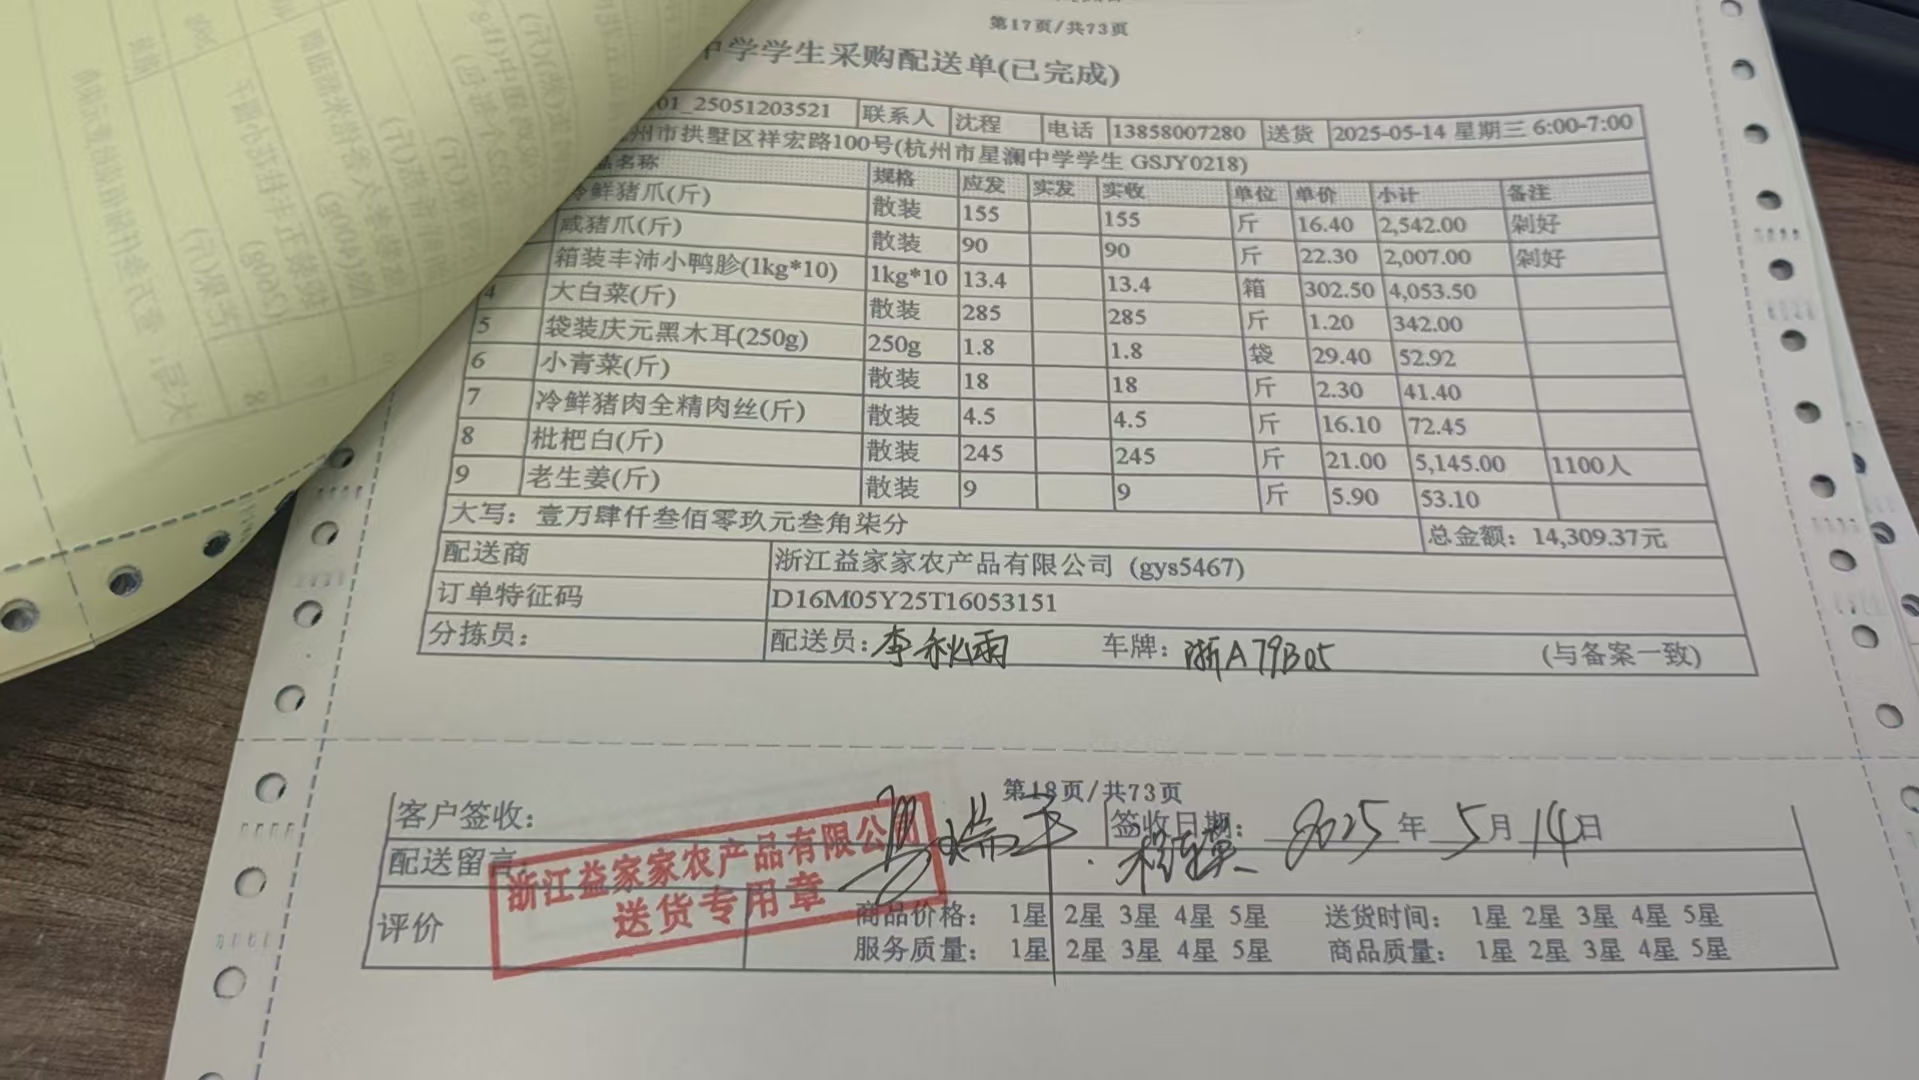 第17页/共73页
中学学生采购配送单(已完成)
01_25051203521 联系人 沈程 电话 13858007280 送货 2025-05-14 星期三 6:00-7:00
州市拱墅区祥宏路100号(杭州市星澜中学学生 GSJY0218)
品名称 规格 应发 实发 实收 单位 单价 小计 备注
冷鲜猪爪(斤) 散装 155 155 斤 16.40 2,542.00 剁好
咸猪爪(斤) 散装 90 90 斤 22.30 2,007.00 剁好
箱装丰沛小鸭胗(1kg*10) 1kg*10 13.4 13.4 箱 302.50 4,053.50
4 大白菜(斤) 散装 285 285 斤 1.20 342.00
5 袋装庆元黑木耳(250g) 250g 1.8 1.8 袋 29.40 52.92
6 小青菜(斤) 散装 18 18 斤 2.30 41.40
7 冷鲜猪肉全精肉丝(斤) 散装 4.5 4.5 斤 16.10 72.45
8 枇杷白(斤) 散装 245 245 斤 21.00 5,145.00 1100人
9 老生姜(斤) 散装 9 9 斤 5.90 53.10
大写：壹万肆仟叁佰零玖元叁角柒分 总金额：14,309.37元
配送商 浙江益家家农产品有限公司 (gys5467)
订单特征码 D16M05Y25T16053151
分拣员： 配送员：李秋雨 车牌：浙A79B05 (与备案一致)
第18页/共73页
客户签收： 签收日期： 2025年 5月 14日
配送留言：
浙江益家家农产品有限公司
送货专用章
评价 商品价格： 1星 2星 3星 4星 5星 送货时间： 1星 2星 3星 4星 5星
服务质量： 1星 2星 3星 4星 5星 商品质量： 1星 2星 3星 4星 5星